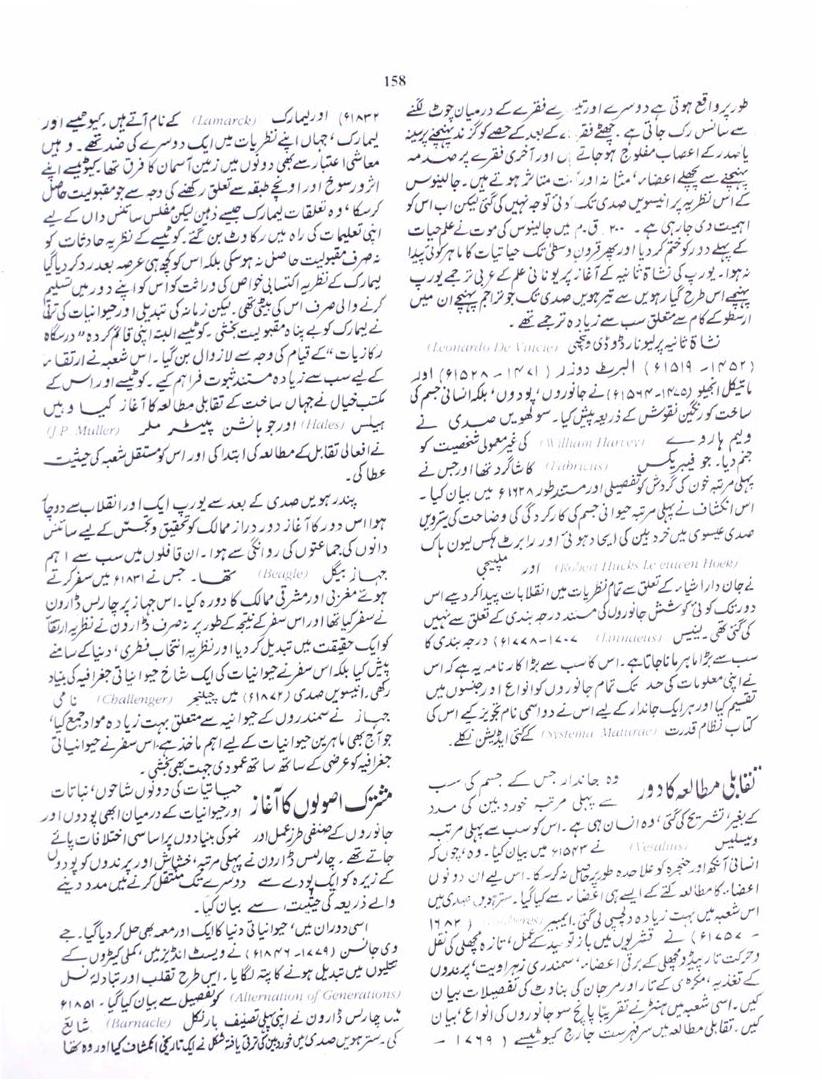 158
طور پر واقع ہوتی ہے دوسرے اور تیسرے فقرے کے درمیان چوٹ لگنے
سے سانس رک جاتی ہے۔ چھٹے فقرے کے بعد کے حصے کو گزند پہنچنے پر سینہ
یا صدر کے اعصاب مفلوج ہو جاتے ہیں اور آخری فقرے پر صدمہ
پہنچنے سے پچھلے اعضاء، مثانہ اور متاثر ہوتے ہیں۔ جالینوس
کے اس نظریہ پر انیسویں صدی تک کوئی توجہ نہیں کی گئی لیکن اب اس کو
اہمیت دی جا رہی ہے۔ ۲۰۰ ق۔م میں جالینوس کی موت نے علم حیات
کے پہلے دور کو ختم کر دیا اور پھر قرون وسطیٰ تک حیاتیات کا ماہر کوئی پیدا
نہ ہوا۔ یورپ کی نشاۃ ثانیہ کے آغاز پر یونانی علم کے عربی ترجمے یورپ
پہنچے اس طرح گیارہویں سے تیرہویں صدی تک جو تراجم پہنچے ان میں
ارسطو کے کام سے متعلق سب سے زیادہ ترجمے تھے۔
نشاۃ ثانیہ پر لیونارڈو ڈی ونچی (Leonardo De Vincie)
(۱۴۵۲ – ۱۵۱۹ء) البرٹ دوزر (۱۴۷۱ – ۱۵۲۸ء) اور
مائیکل انجیلو (۱۴۷۵ – ۱۵۶۴ء) نے جانوروں، پودوں، بلکہ انسانی جسم کی
ساخت کو رنگین نقوش کے ذریعہ پیش کیا۔ سولھویں صدی نے
ولیم ہاروے (William Harvey) کی غیر معمولی شخصیت کو
جنم دیا۔ جو فیبریکس (Fabricus) کا شاگرد تھا اور جس نے
پہلی مرتبہ خون کی گردش کو تفصیلی اور مستند طور ۱۶۲۸ء میں بیان کیا۔
اس انکشاف نے پہلی مرتبہ حیوانی جسم کی کارکردگی کی وضاحت کی سترویں
صدی عیسوی میں خردبین کی ایجاد ہوئی اور رابرٹ ہکس لیون ہاک
(Robert Hucks Le euwen Hoek) اور ملپیجی
نے جاندار اشیاء کے تعلق سے تمام نظریات میں انقلابات پیدا کر دیے اس
دور تک کوئی کوشش جانوروں کی مستند درجہ بندی کے تعلق سے نہیں
کی گئی تھی۔ لینیس (Linnaeus) (۱۷۰۷ – ۱۷۷۸ء) درجہ بندی کا
سب سے بڑا ماہر مانا جاتا ہے۔ اس کا سب سے بڑا کارنامہ یہ ہے کہ اس
نے اپنی معلومات کی حد تک تمام جانوروں کو انواع اور جنسوں میں
تقسیم کیا اور ہر ایک جاندار کے لیے اس نے دو اسمی نام تجویز کیے اس کی
کتاب نظام قدرت (Systema Matturae) کے کئی ایڈیشن نکلے۔
تقابلی مطالعہ کا دور
وہ جاندار جس کے جسم کی سب
سے پہلی مرتبہ خوردبین کی مدد
کے بغیر تشریح کی گئی، وہ انسان ہی ہے۔ اس کو سب سے پہلی مرتبہ
ویسلیس (Vesalius) نے ۱۵۴۳ء میں بیان کیا۔ وہ، چوں کہ
انسانی آنکھ اور حنجرہ کو علاحدہ طور پر حاصل نہ کر سکا۔ اس لیے ان دونوں
اعضاء کا مطالعہ کتے کے ایسے ہی اعضاء سے کیا گیا۔ سترہویں صدی میں
اس شعبہ میں بہت زیادہ دلچسپی لی گئی۔ ایمبیر (۱۶۸۳
– ۱۷۵۷ء) نے قشریوں میں باز تولید کے عمل، تازہ مچھلی کی نقل
و حرکت تارپیڈو مچھلی کے برقی اعضاء، سمندری زہراویت، پرندوں
کے تغذیہ، مکڑی کے تار اور مرجان کی بناوٹ کی تفصیلات بیان
کیں۔ اسی شعبہ میں ہنٹر نے تقریباً پانچ سو جانوروں کی انواع، بیان
کیں۔ تقابلی مطالعہ میں سر فہرست جارج کیوٹیسے (۱۷۶۹ –
۱۸۳۲ء) اور لیمارک (Lamarck) کے نام آتے ہیں۔ کیوٹیسے اور
لیمارک، جہاں اپنے نظریات میں ایک دوسرے کی ضد تھے۔ وہیں
معاشی اعتبار سے بھی دونوں میں زمین آسمان کا فرق تھا۔ کیوٹیسے اپنے
اثر و رسوخ اور اونچے طبقہ سے تعلق رکھنے کی وجہ سے جو مقبولیت حاصل
کر سکا، وہ تعلقات لیمارک جیسے ذہین لیکن مفلس سائنس داں کے لیے
اپنی تعلیمات کی راہ میں رکاوٹ بن گئے۔ کوٹیسے کے نظریہ حادثات کو
نہ صرف مقبولیت حاصل نہ ہو سکی بلکہ اس کو کچھ ہی عرصہ بعد رد کر دیا گیا
لیمارک کے نظریہ اکتسابی خواص کی وراثت کو اس کو اپنے دور میں تسلیم
کرنے والی صرف اس کی بیٹی تھی۔ لیکن زمانہ کی تبدیلی اور حیوانیات کی ترقی
نے لیمارک کو بے پناہ مقبولیت بخشی۔ کوٹیسے البتہ اپنی قائم کردہ "درسگاہ
رکازیات" کے قیام کی وجہ سے لازوال بن گیا۔ اس شعبہ نے ارتقاء
کے لیے سب سے زیادہ مستند ثبوت فراہم کیے۔ کوٹیسے اور اس کے
مکتب خیال نے جہاں ساخت کے تقابلی مطالعہ کا آغاز کیا وہیں
ہیلس (Hales) اور جوہانسن پیٹر ملر (J.P Muller)
نے افعالی تقابل کے مطالعہ کی ابتدا کی اور اس کو مستقل شعبہ کی حیثیت
عطا کی۔
پندرہویں صدی کے بعد سے یورپ ایک اور انقلاب سے دوچار
ہوا اس دور کا آغاز دور دراز ممالک کو تحقیق و تجسس کے لیے سائنس
دانوں کی جماعتوں کی روانگی سے ہوا۔ ان قافلوں میں سب سے اہم
جہاز بیگل (Beagle) تھا۔ جس نے ۱۸۳۱ء میں سفر کرتے
ہوئے مغربی اور مشرقی ممالک کا دورہ کیا۔ اس جہاز پر چارلس ڈارون
نے سفر کیا تھا اور اس سفر کے نتیجہ کے طور پر نہ صرف ڈارون نے نظریہ ارتقاء
کو ایک حقیقت میں تبدیل کر دیا اور نظریہ انتخاب فطری، دنیا کے سامنے
پیش کیا بلکہ اس سفر نے حیوانیات کی ایک شاخ حیوانیاتی جغرافیہ کی بنیاد
رکھی۔ انیسویں صدی (۱۸۷۲ء) میں چیلنجر (Challenger) نامی
جہاز نے سمندروں کے حیوانیہ سے متعلق بہت زیادہ مواد جمع کیا،
جو آج بھی ماہرین حیوانیات کے لیے اہم ماخذ ہے، اس سفر نے حیوانیاتی
جغرافیہ کو عرضی کے ساتھ ساتھ عمودی جہت بھی بخشی۔
مشترک اصولوں کا آغاز
حیاتیات کی دونوں شاخوں، نباتات
اور حیوانیات کے درمیان ابھی پودوں اور
جانوروں کے صنفی طرز عمل اور نمو کی بنیادوں پر اساسی اختلافات پائے
جاتے تھے۔ چارلس ڈارون نے پہلی مرتبہ، خشاش اور پرندوں کو پودوں
کے زیرہ کو ایک پودے سے دوسرے تک منتقل کرنے میں مدد دینے
والے ذریعہ کی حیثیت، سے بیان کیا۔
اسی دوران میں، حیوانی دنیا کا ایک اور معمہ بھی حل کر دیا گیا۔ جے
وی جانسن (۱۷۷۹ – ۱۸۴۶ء) نے ویسٹ انڈیز میں، کملی کیڑوں کے
تتلیوں میں تبدیل ہونے کا پتہ لگایا۔ اس طرح تقلب اور تبادلۂ نسل
(Alternation of Generations) کو تفصیل سے بیان کیا گیا۔ ۱۸۵۱ء
میں چارلس ڈارون نے اپنی پہلی تصنیف بارنکل (Barnacle) شائع
کی۔ سترہویں صدی میں خوردبین کی ترقی یافتہ شکل نے ایک تاریخی انکشاف کیا اور وہ تھا